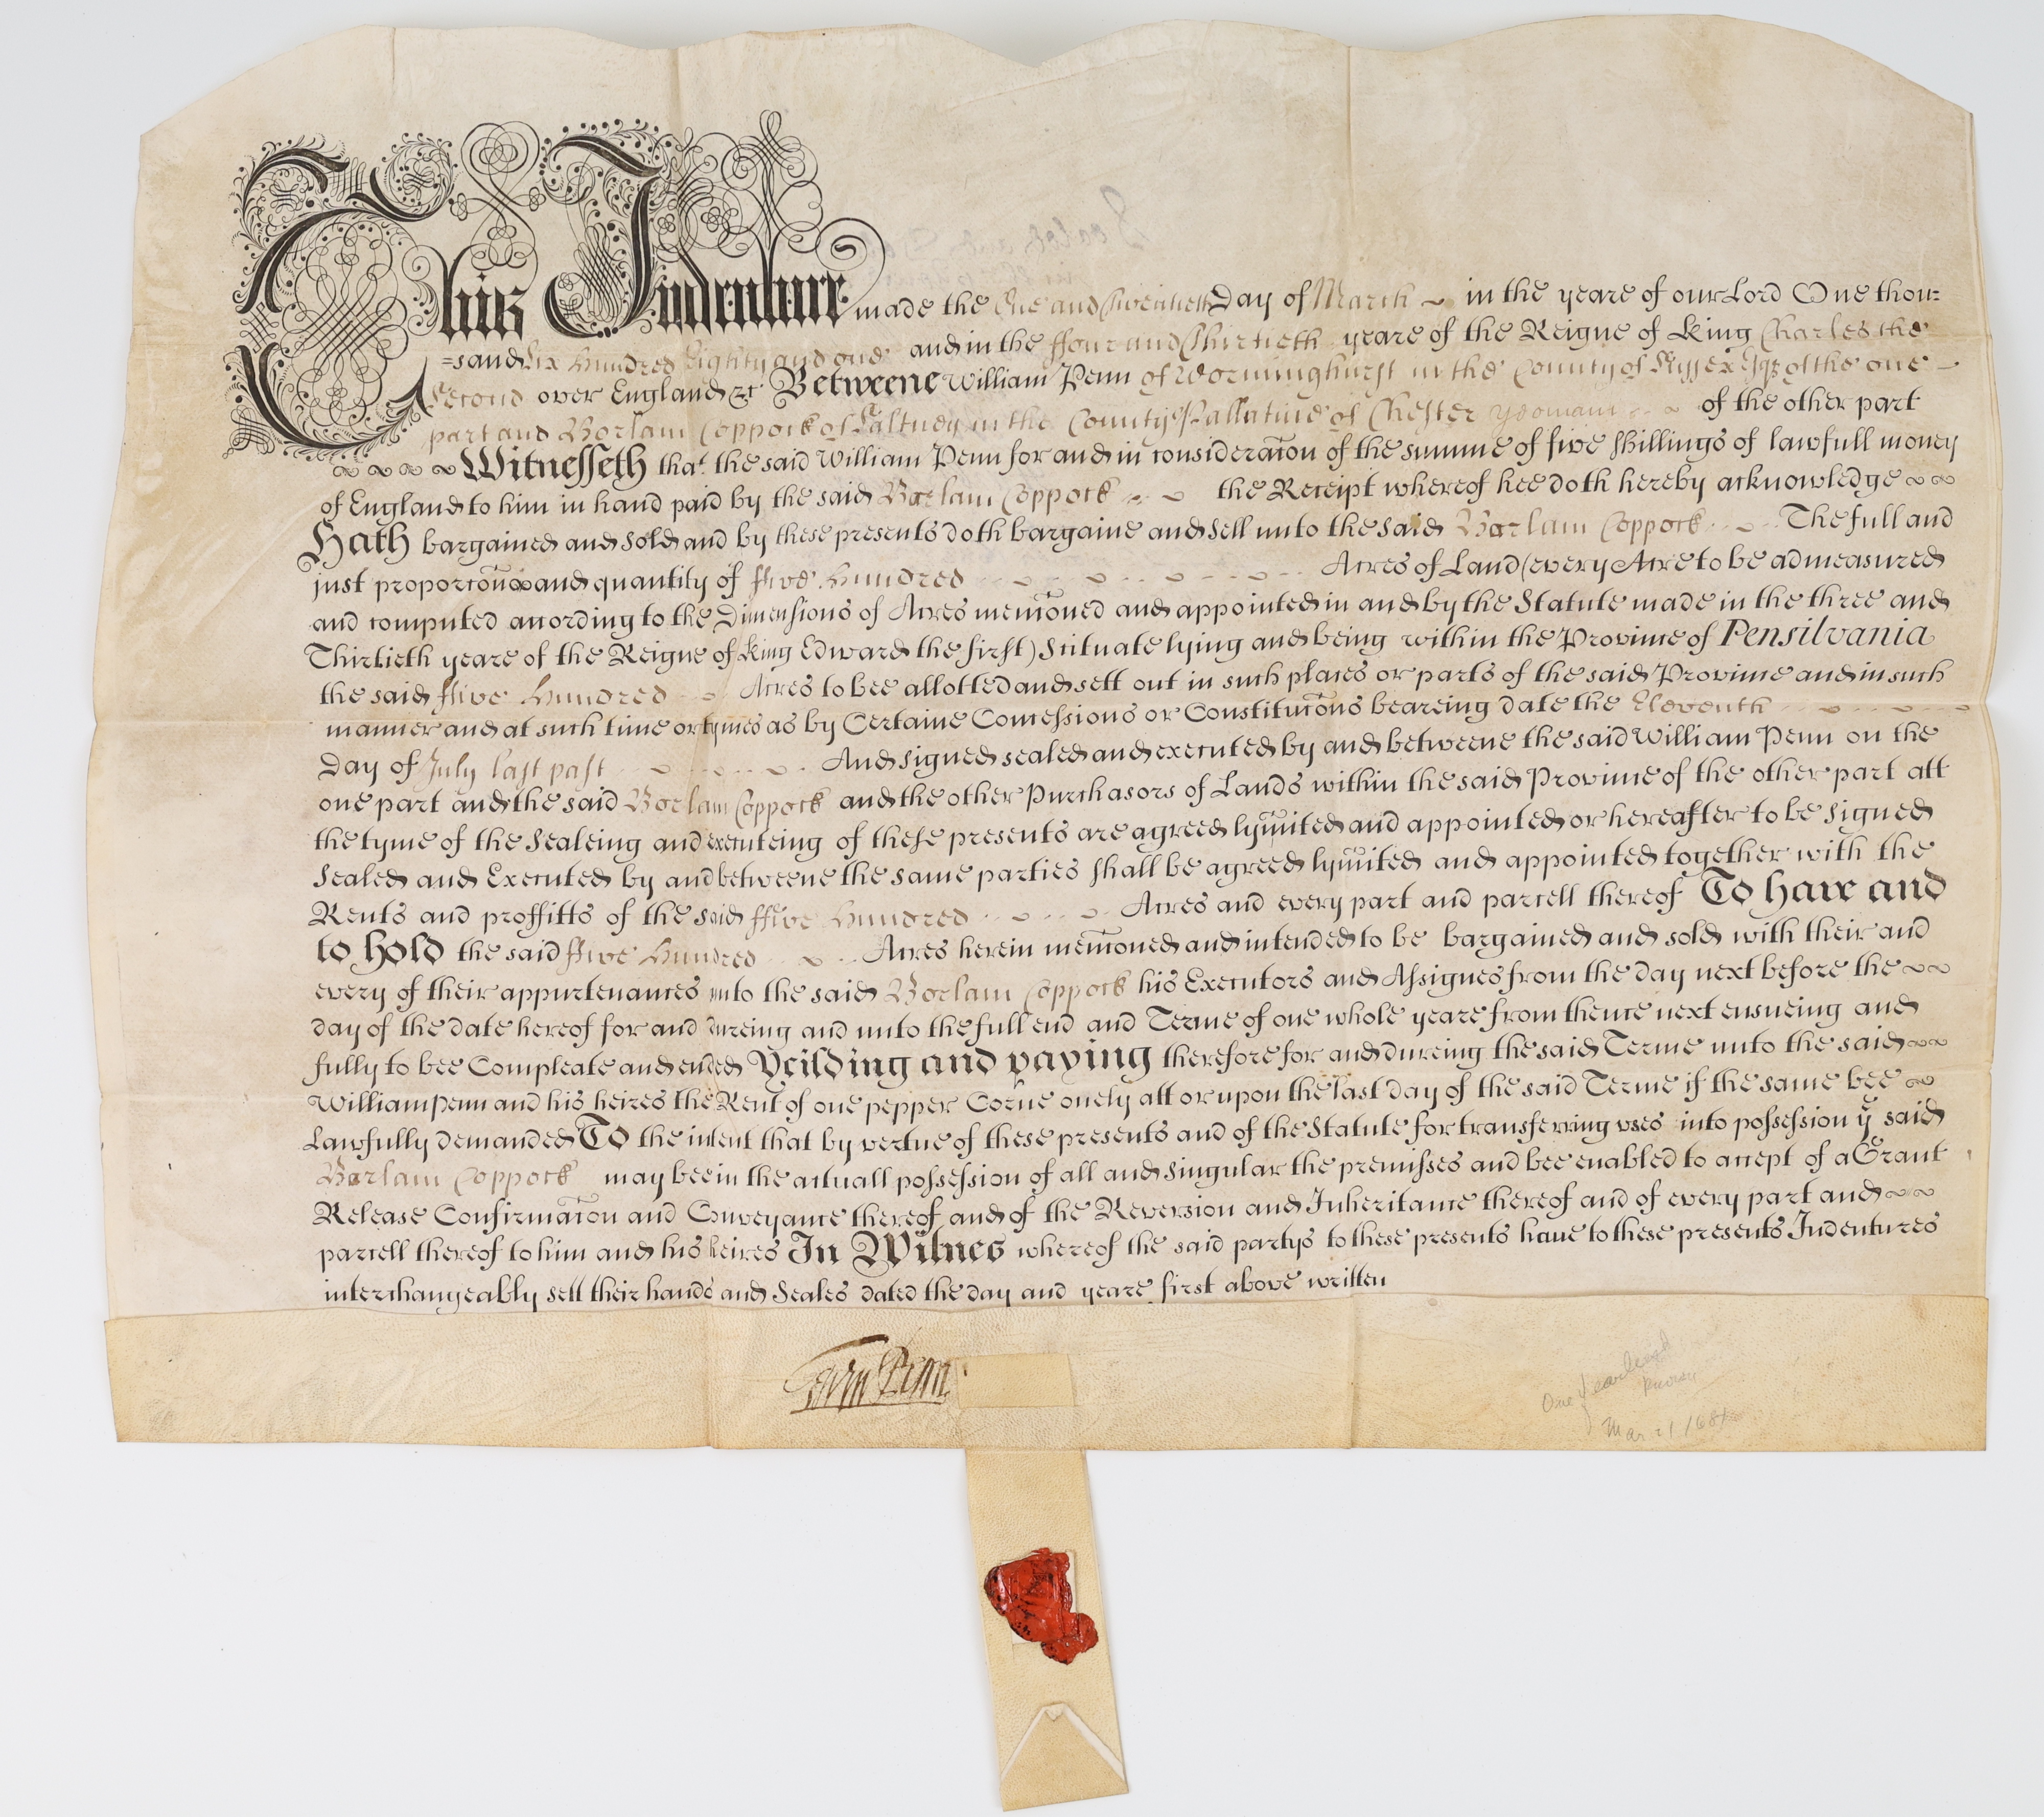 This Indenture made the One and Twentieth Day of March in the yeare of our Lord One thou=
=sand Six Hundred Eighty and one and in the ffour and Thirtieth yeare of the Reigne of King Charles the
Second over England &c Betweene William Penn of Worminghurst in the County of Sussex Esqr of the one
part and Bartlam Coppock of Saltney in the County Pallatine of Chester yeoman of the other part
Witnesseth that the said William Penn for and in consideracon of the summe of five shillings of lawfull money
of England to him in hand paid by the said Coppock the Receipt whereof hee doth hereby acknowledge
Hath bargained and sold and by these presents doth bargaine and sell unto the said Coppock The full and
just proporcon and quantity of ffive Hundred Acres of Land (every Acre to be admeasured
and computed according to the Dimensions of Acres menconed and appointed in and by the Statute made in the three and
Thirtieth yeare of the Reigne of King Edward the first) Scituate lying and being within the Province of Pensilvania
the said ffive Hundred Acres to bee allotted and sett out in such places or parts of the said Province and in such
manner and at such time or tymes as by Certaine Concessions or Constitucons beareing date the Eleventh
Day of July last past And signed sealed and executed by and betweene the said William Penn on the
one part and the said Coppock and the other Purchasors of Lands within the said Province of the other part att
the tyme of the Sealeing and executeing of these presents are agreed lymited and appointed or hereafter to be Signed
Sealed and Executed by and betweene the same parties shall be agreed lymited and appointed together with the
Rents and proffitts of the said ffive Hundred Acres and every part and parcell thereof To have and
to hold the said ffive Hundred Acres herein menconed and intended to be bargained and sold with their and
every of their appurtenances unto the said Coppock his Executors and Assignes from the day next before the
day of the date hereof for and dureing and unto the full end and Terme of one whole yeare from thence next ensueing and
fully to bee Compleate and ended Yeilding and paying therefore for and dureing the said Terme unto the said
William Penn and his heires the Rent of one pepper Corne onely att or upon the last day of the said Terme if the same bee
Lawfully demanded To the intent that by vertue of these presents and of the Statute for transferring uses into possession ye said
Coppock may bee in the actuall possession of all and singular the premisses and bee enabled to accept of a Grant
Release Confirmacon and Conveyance thereof and of the Reversion and Inheritance thereof and of every part and
parcell thereof to him and his heires In Witnes whereof the said partys to these presents have to these presents Indentures
interchangeably sett their hands and Seales dated the day and yeare first above written
Wm Penn
One
Mar 21 1681